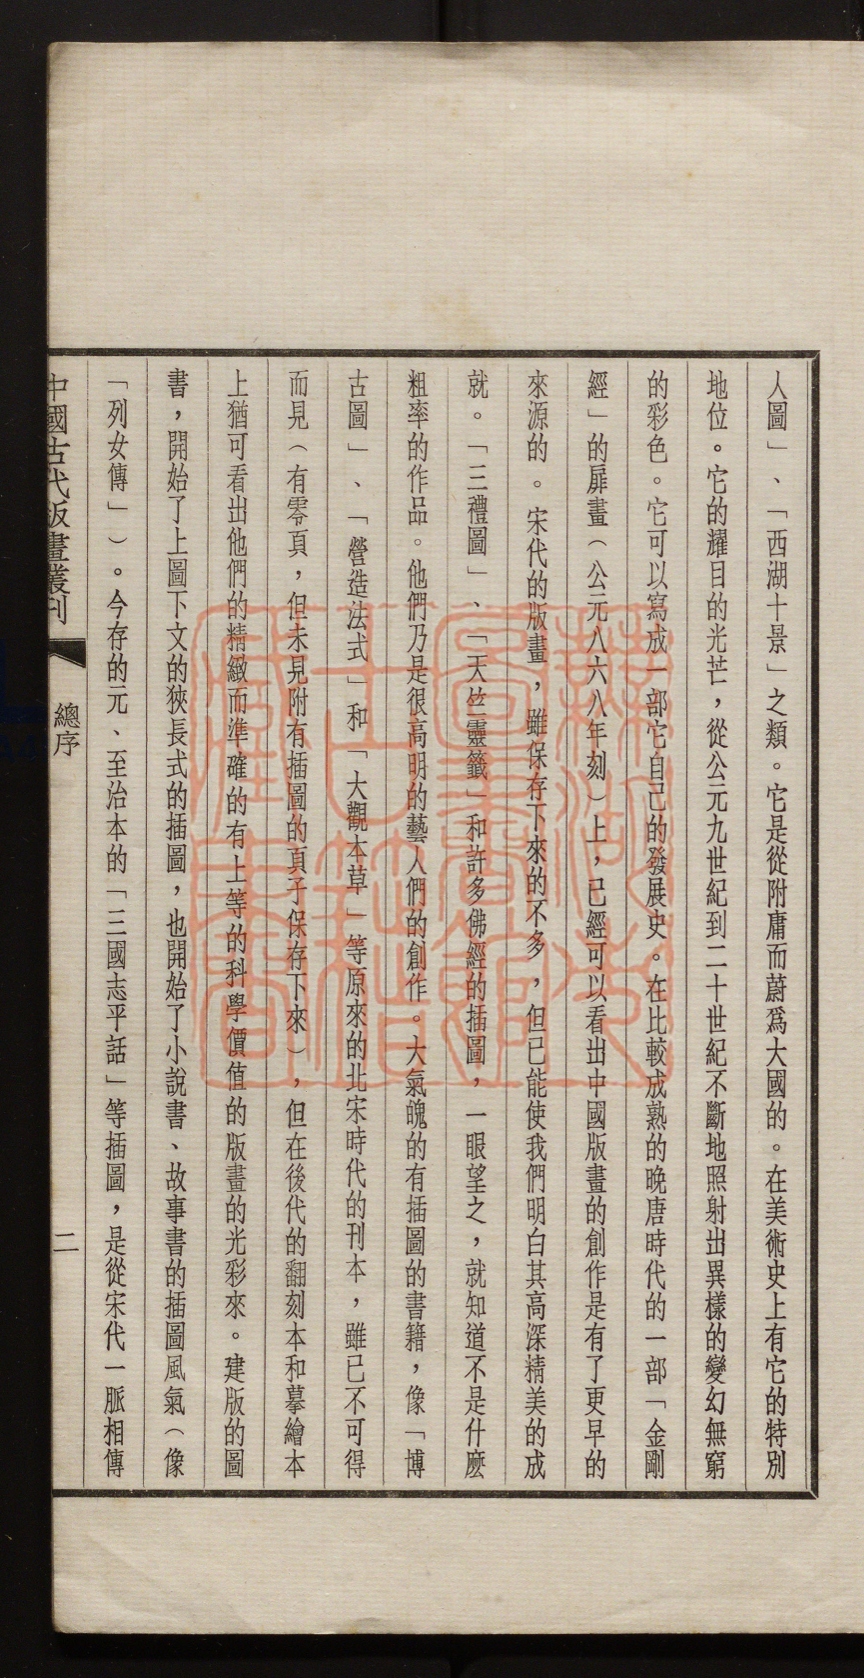 人圖」、「西湖十景」之類。它是從附庸而蔚爲大國的。在美術史上有它的特別
地位。它的耀目的光芒，從公元九世紀到二十世紀不斷地照射出異樣的變幻無窮
的彩色。它可以寫成一部它自己的發展史。在比較成熟的晚唐時代的一部「金剛
經」的扉畫（公元八六八年刻）上，已經可以看出中國版畫的創作是有了更早的
來源的。宋代的版畫，雖保存下來的不多，但已能使我們明白其高深精美的成
就。「三禮圖」、「天竺靈籤」和許多佛經的插圖，一眼望之，就知道不是什麼
粗率的作品。他們乃是很高明的藝人們的創作。大氣魄的有插圖的書籍，像「博
古圖」、「營造法式」和「大觀本草」等原來的北宋時代的刊本，雖已不可得
而見（有零頁，但未見附有插圖的頁子保存下來），但在後代的翻刻本和摹繪本
上猶可看出他們的精緻而準確的有上等的科學價值的版畫的光彩來。建版的圖
書，開始了上圖下文的狹長式的插圖，也開始了小說書、故事書的插圖風氣（像
「列女傳」）。今存的元、至治本的「三國志平話」等插圖，是從宋代一脈相傳
中國古代版畫叢刊
總序
二